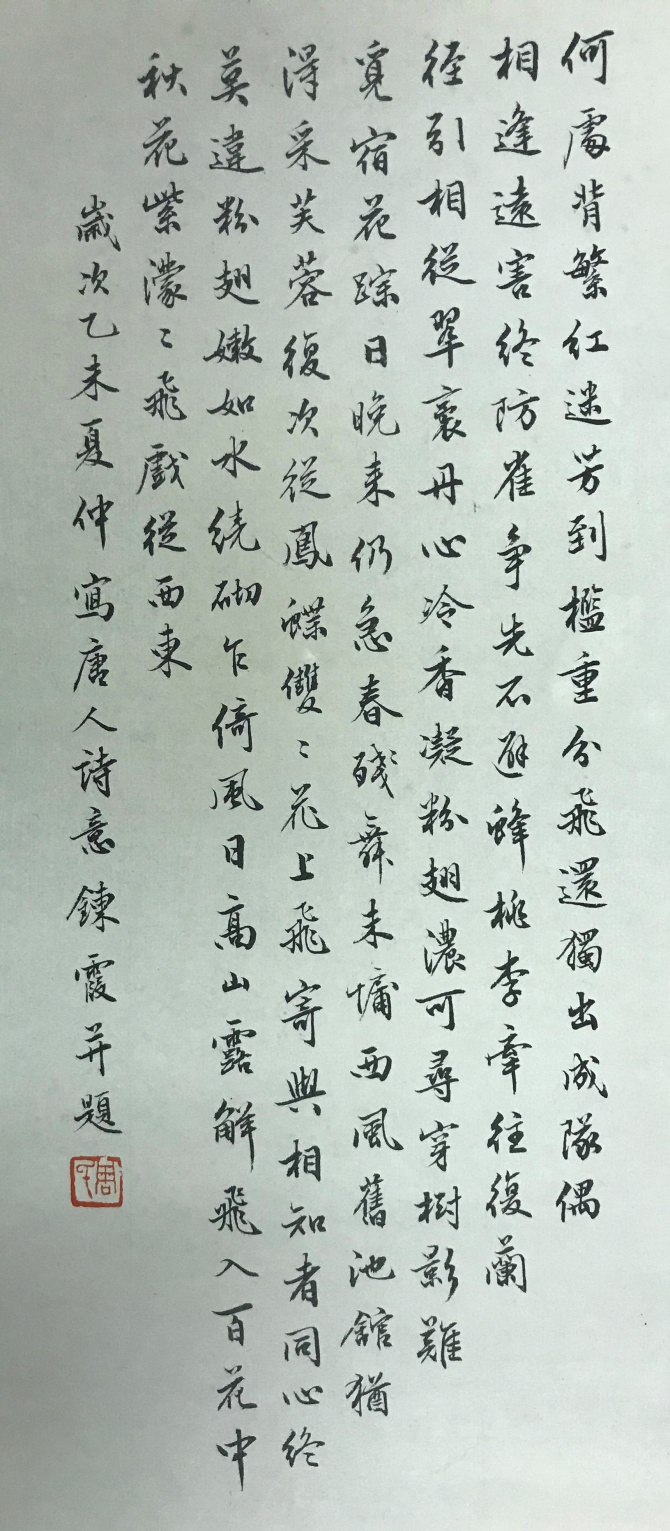 何處背繁紅迷芳到檻重分飛還獨出成隊偶
相逢遠害終防雀爭先不避蜂桃李牽往復蘭
徑引相從翠裛丹心冷香凝粉翅濃可尋穿樹影難
覓宿花踪日晚來仍急春殘舞未慵西風舊池館猶
得采芙蓉復次從鳳蝶雙〻花上飛寄與相知者同心終
莫違粉翅嫩如水繞砌乍倚風日高山露解飛入百花中
秋花紫濛〻飛戲從西東
歲次乙未夏仲寫唐人詩意鍊霞并題